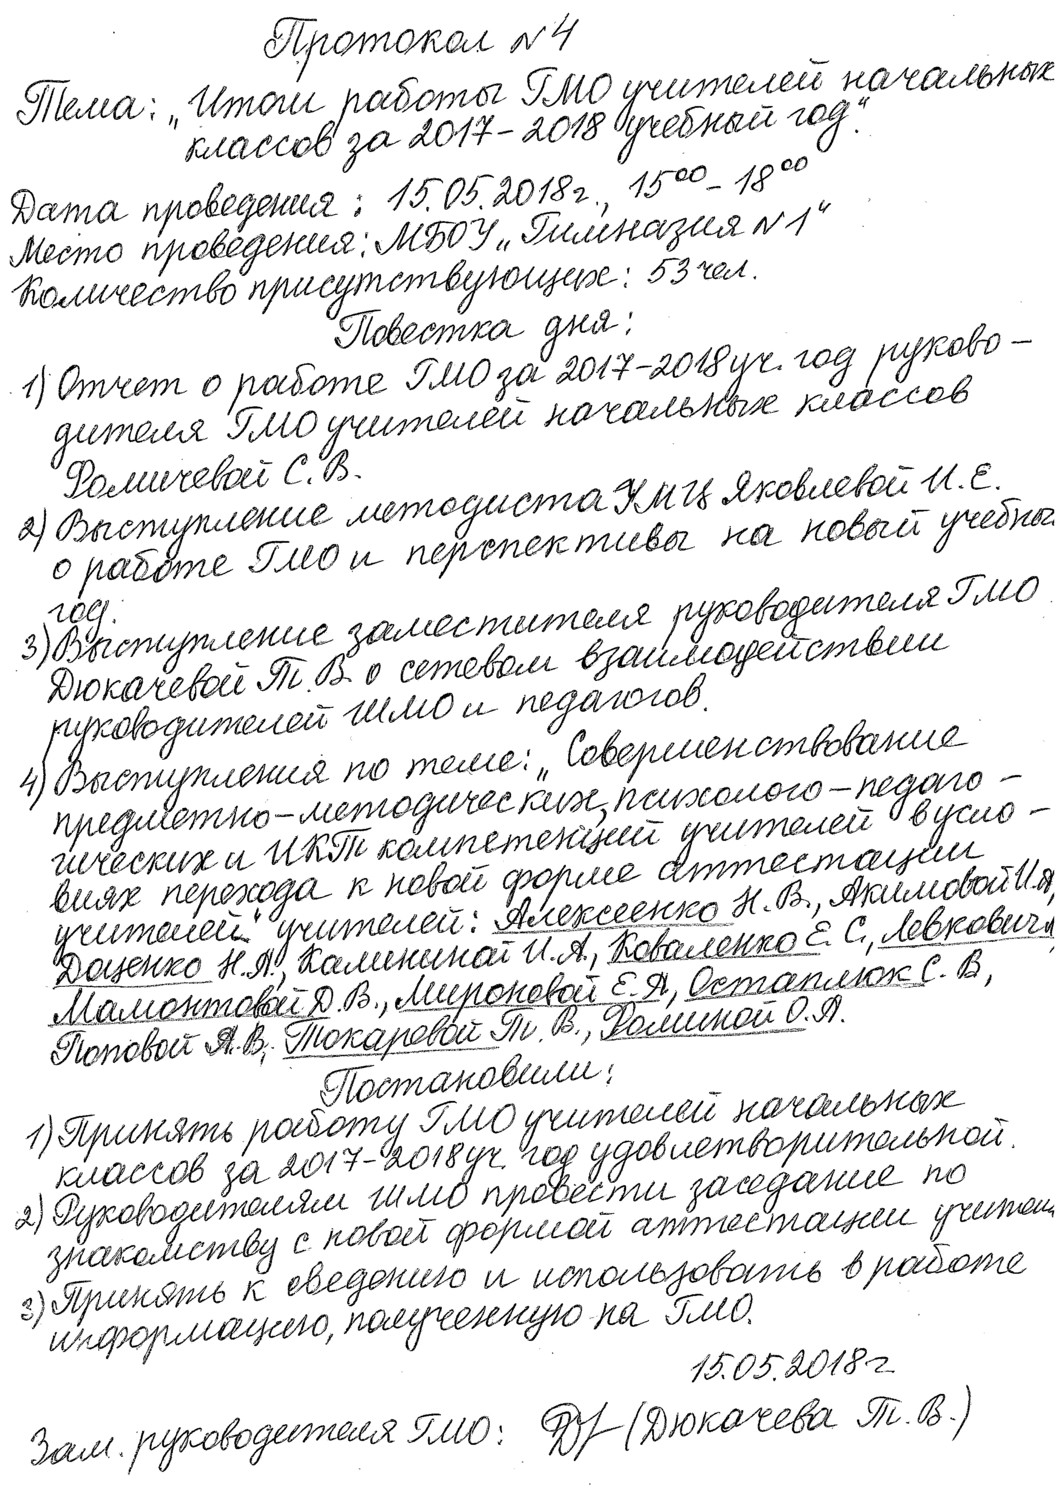 Протокол №4
Тема: „Итоги работы ГМО учителей начальных
классов за 2017-2018 учебный год".
Дата проведения: 15.05.2018г., 15⁰⁰-18⁰⁰
Место проведения: МБОУ „Гимназия №1"
Количество присутствующих: 53 чел.
Повестка дня:
1) Отчет о работе ГМО за 2017-2018 уч. год руково-
дителя ГМО учителей начальных классов
Фомичевой С. В.
2) Выступление методиста УМЦ Яковлевой И. Е.
о работе ГМО и перспективы на новый учебны
год.
3) Выступление заместителя руководителя ГМО
Дюкачевой Т. В. о сетевом взаимодействии
руководителей ШМО и педагогов.
4) Выступления по теме: „Совершенствование
предметно-методических, психолого-педаго-
гических и ИКТ компетенций учителей в усло-
виях перехода к новой форме аттестации
учителей" учителей: Алексеенко Н. В., Акимовой И. А,
Доценко Н. А., Калининой И. А., Коваленко Е. С., Левкович
Мамонтовой Д. В., Мироновой Е. А, Остаплюк С. В,
Поповой А. В., Токаревой Т. В., Фоминой О. А.
Постановили:
1) Принять работу ГМО учителей начальных
классов за 2017-2018 уч. год удовлетворительной.
2) Руководителям ШМО провести заседание по
знакомству с новой формой аттестации учителе
3) Принять к сведению и использовать в работе
информацию, полученную на ГМО.
15.05.2018 г
Зам. руководителя ГМО: (Дюкачева Т. В.)